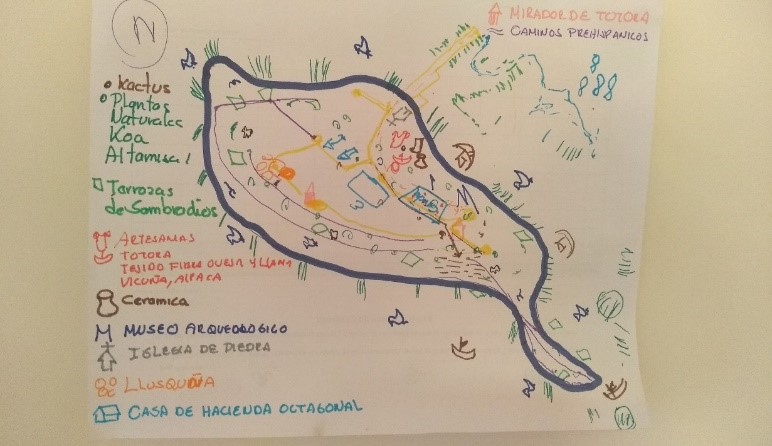 N
MIRADOR DE TOTORA
CAMINOS PREHISPANICOS
Kactus
Plantas
Naturales
Koa
Altamisa
Tarrazas
de Sombrodios
ARTESANAS
TOTORA
TEJIDO FIBRA OVEJA Y LLAMA
VICUÑA, ALPACA
Ceramica
M MUSEO ARQUEOLOGICO
IGLESIA DE PIEDRA
LLUSQUÑA
CASA DE HACIENDA OCTAGONAL